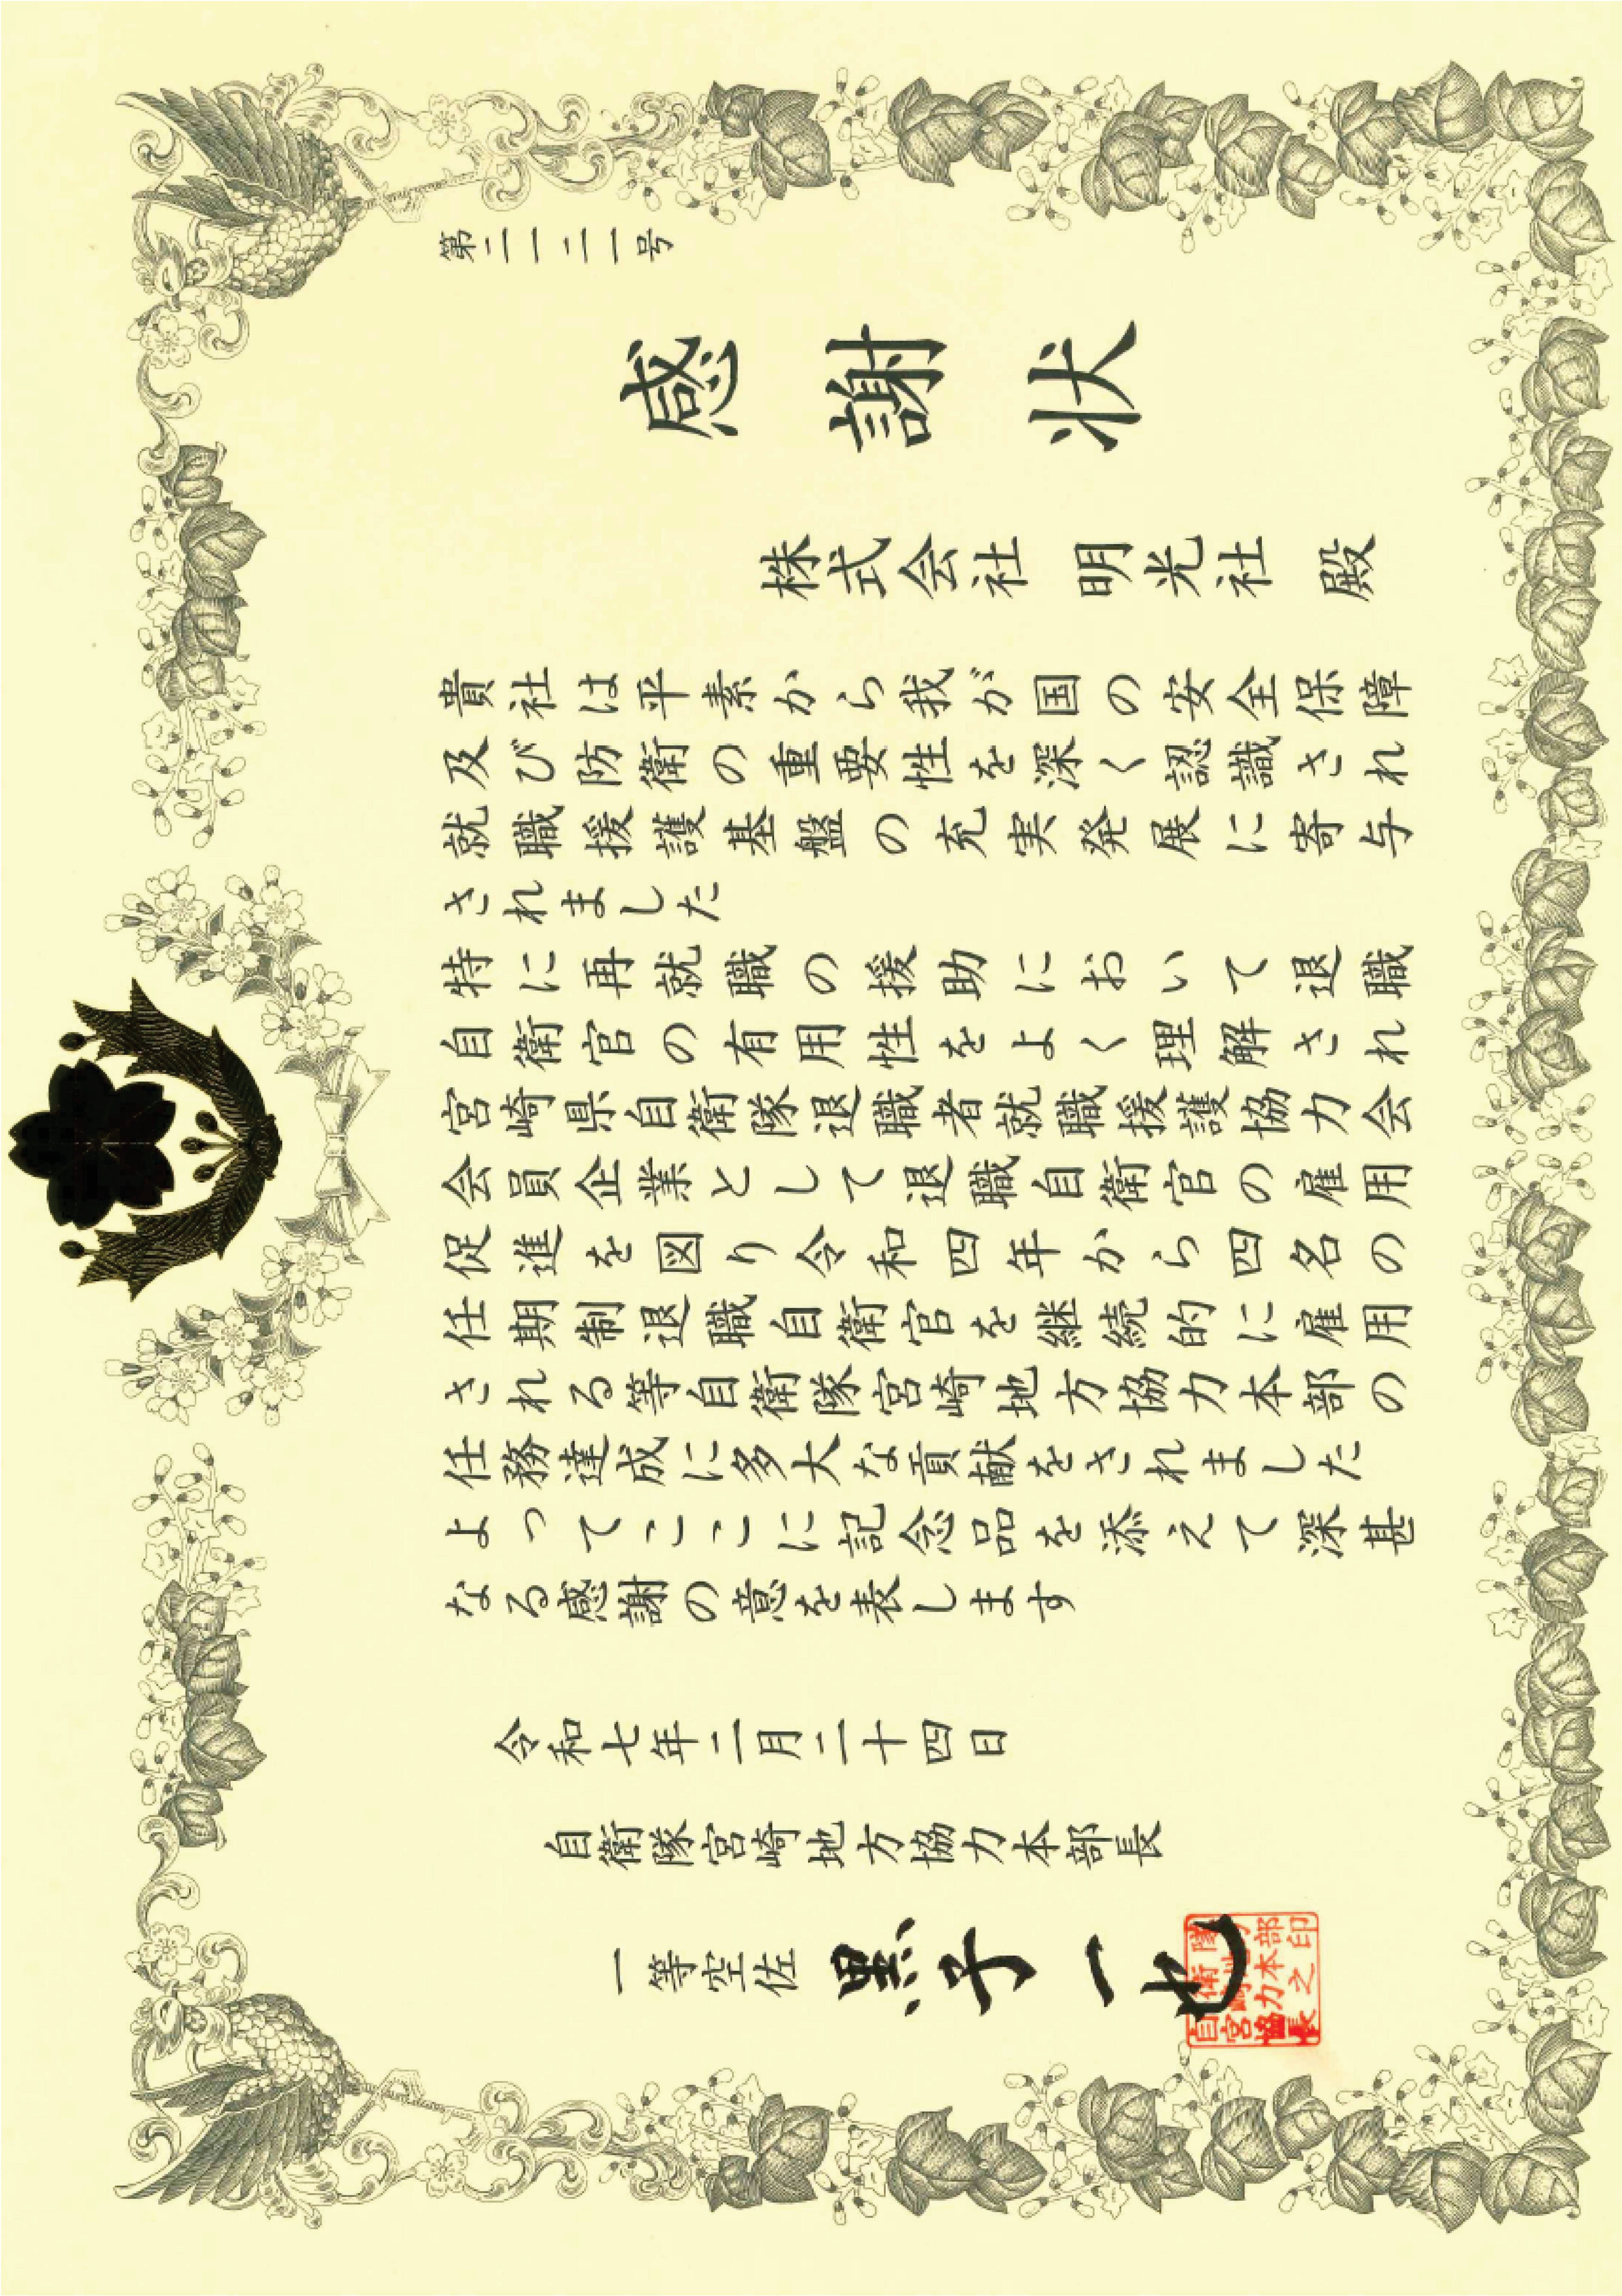 第二一二一号
感謝状
株式会社 明光社 殿
貴社は平素から我が国の安全保障
及び防衛の重要性を深く認識され
就職援護基盤の充実発展に寄与
されました
特に再就職の援助において退職
自衛官の有用性をよく理解され
宮崎県自衛隊退職者就職援護協力会
会員企業として退職自衛官の雇用
促進を図り令和四年から四名の
任期制退職自衛官を継続的に雇用
される等自衛隊宮崎地方協力本部の
任務達成に多大な貢献をされました
よってここに記念品を添えて深甚
なる感謝の意を表します
令和七年二月二十四日
自衛隊宮崎地方協力本部長
一等空佐 黒子一也
自衛隊
宮崎地方
協力本部
長之印